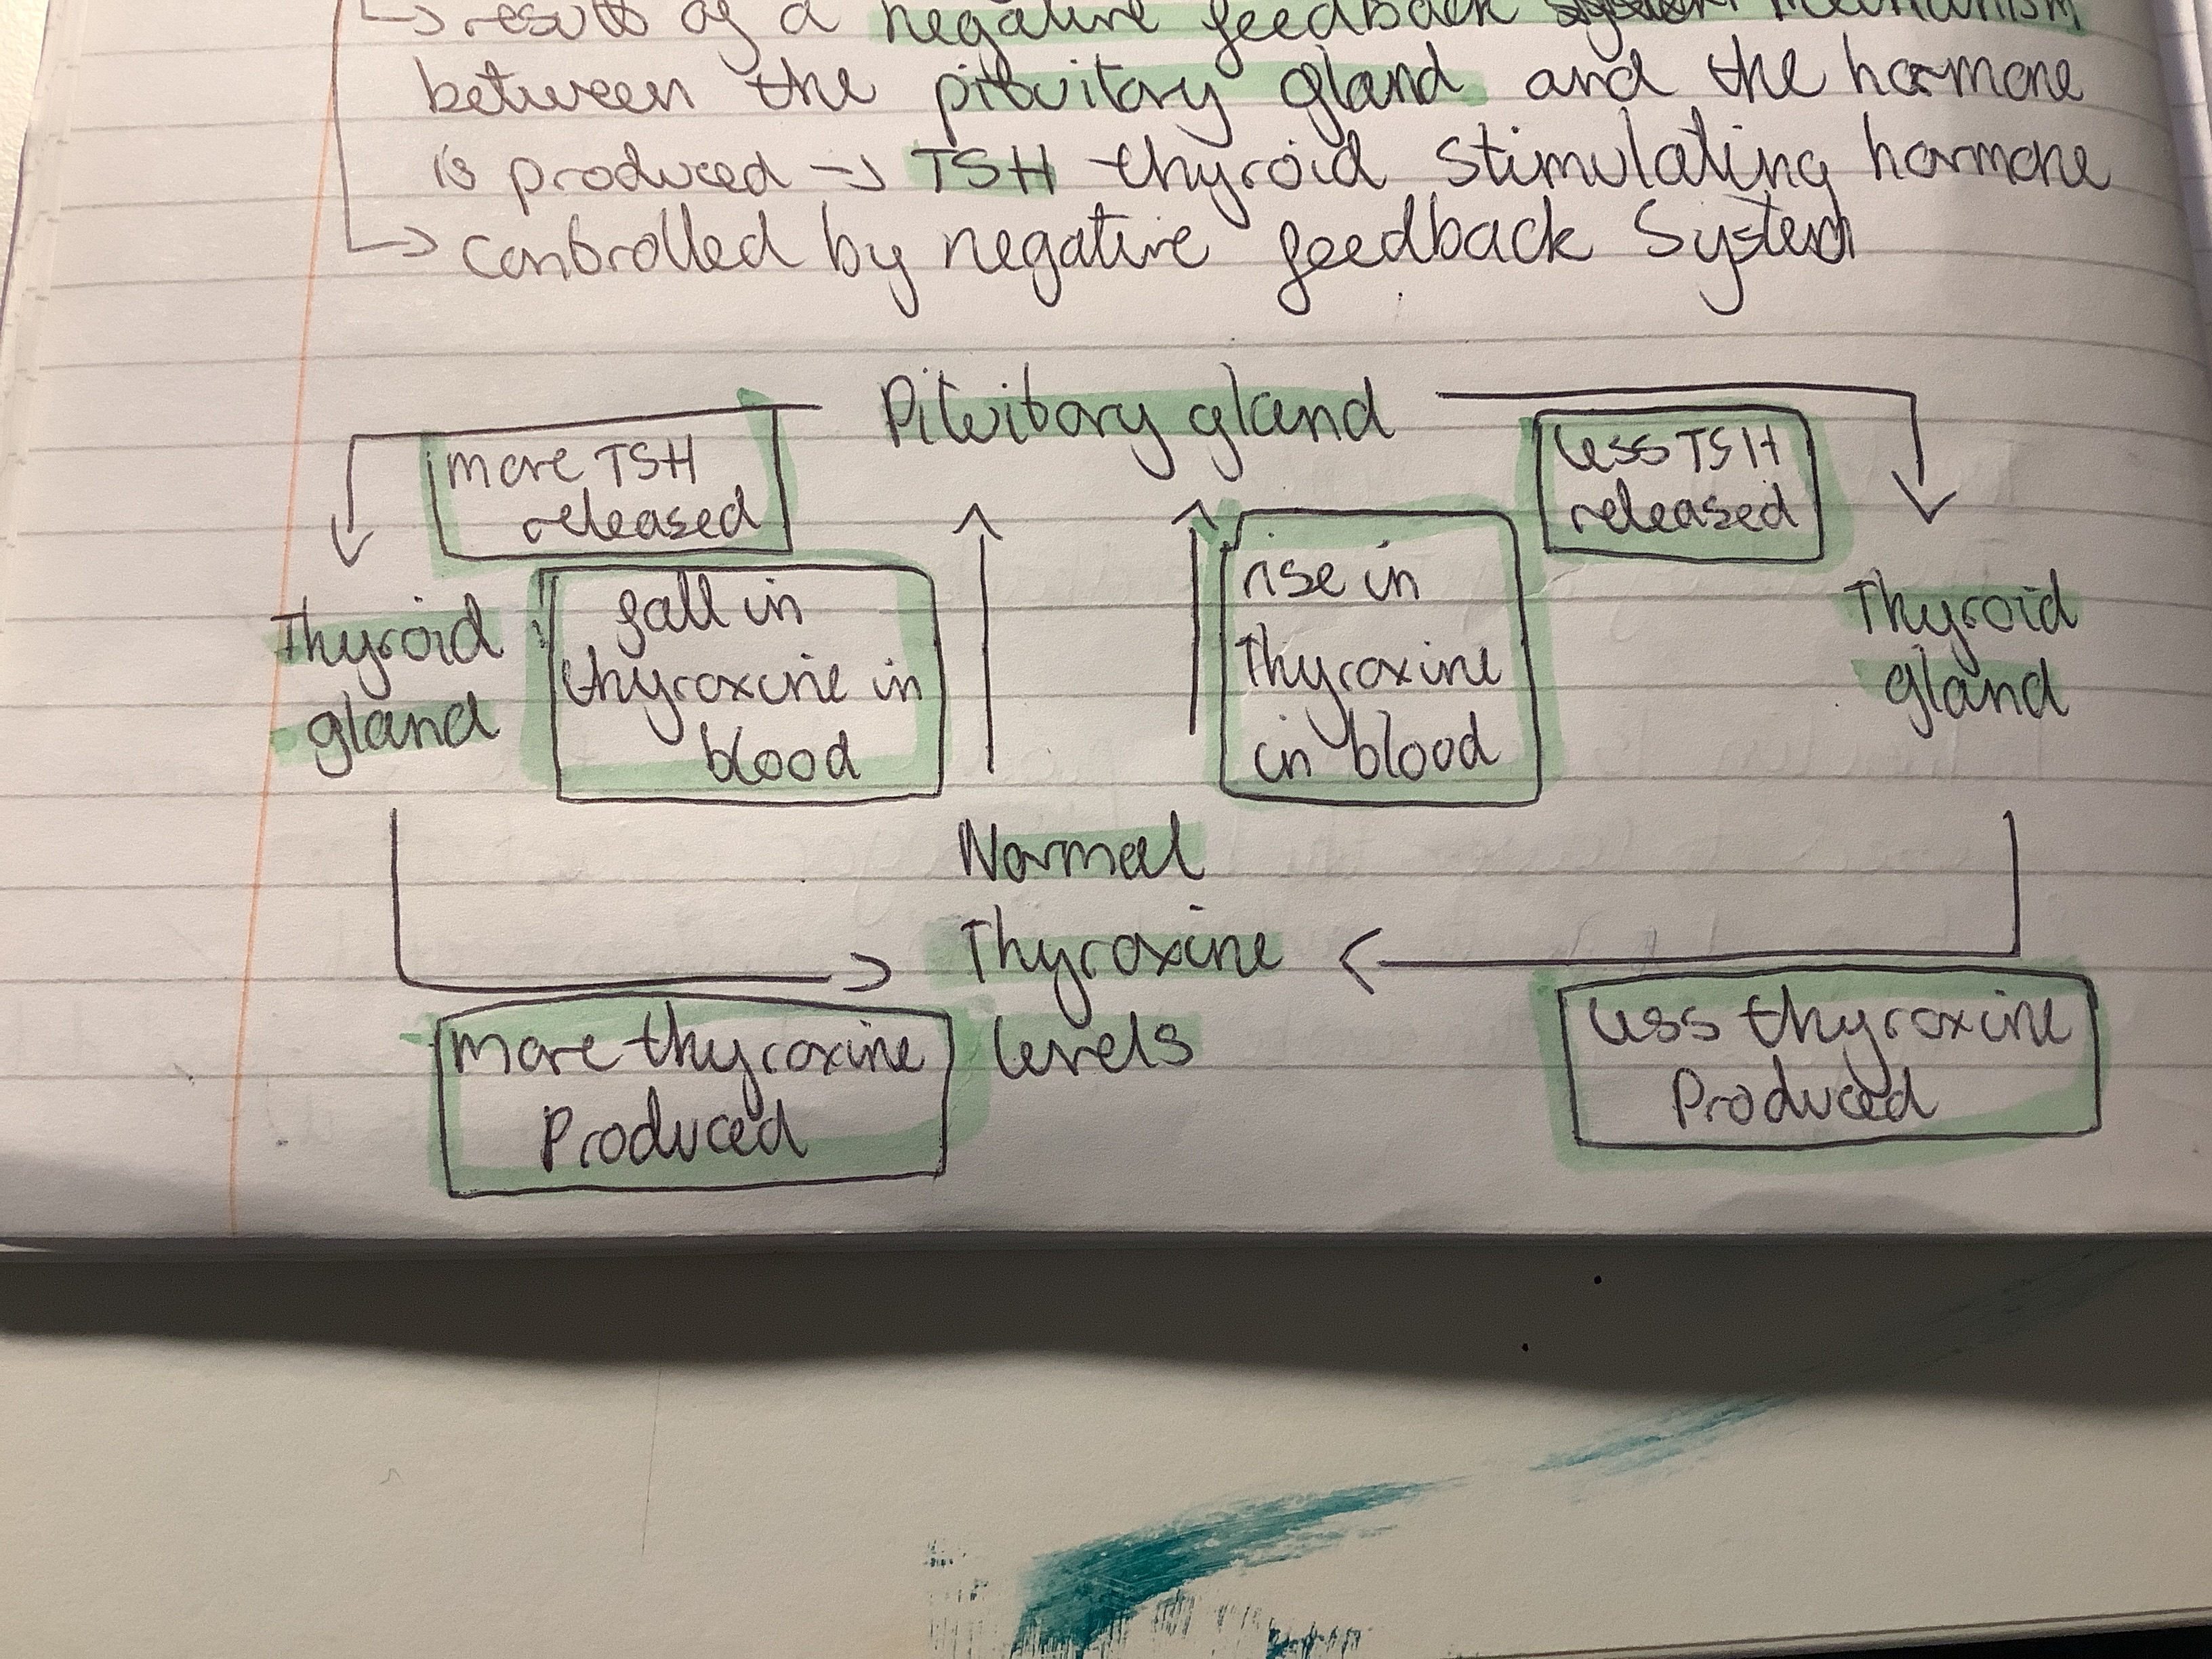 ↳ results of a negative feedback mechanism
between the pituitary gland and the hormone
is produced → TSH thyroid stimulating hormone
↳ controlled by negative feedback System
Pituitary gland
more TSH
released
less TSH
released
fall in
thyroxine in
blood
rise in
Thyroxine
in blood
Thyroid
gland
Thyroid
gland
Normal
Thyroxine
levels
more thyroxine
Produced
less thyroxine
Produced